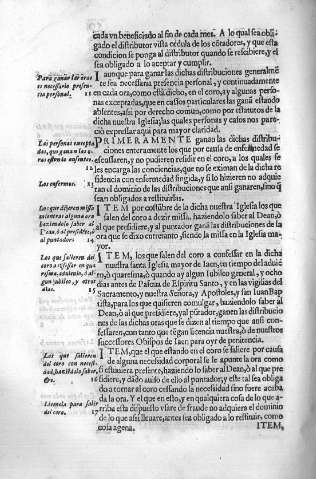 cada vn beneficiado al fin de cada mes. A lo qual sea obligado
el distribuidor vista cedula de los cõtadores, y que esta
condicion se ponga al distribuidor quando se rescibiere, y el
sea obligado a lo aceptar y cumplir.
Para ganar las oras es necessario presencia personal. 11
I aunque para ganar las dichas distribuciones generalmẽte
sea necessaria presencia personal, y continuamente
en cada ora, como está dicho, en el coro, ay algunas personas
exceptadas, que en casos particulares las ganã estando
absentes, assi por derecho comun, como por estatutos de la
dicha nuestra Iglesia, las quales personas y casos nos parecio
expressar aqui para mayor claridad.
Las personas exceptadas, que ganan las oras estando ausentes. 12
PRIMERAMENTE ganan las dichas distribuciones
enteramente los que por causa de enfermedad se
escussaren, y no pudieren residir en el coro, a los quales se
Los enfermos. 13
les encarga las consciencias, que no se eximan de la dicha residencia
con enfermedad fingida, y si lo hizieren no adquieran
el dominio de las distribuciones que ansi ganaren, sino q̃
sean obligados a restituirlas.
Los que dixeren missa
haziendolo saber al Dean, ò al presidẽte, ò al puntador. 14
ITEM por costũbre de la dicha nuestra Iglesia los que
salen del coro a dezir missa, haziendolo saber al Dean, ò
al que presidiere, y al puntador ganã las distribuciones de la
ora que se dixo entretanto, siendo la missa en la Iglesia mayor.
Los que salieren del coro 15
ITEM, los que salen del coro a confessar en la dicha
nuestra sancta Iglesia mayor de Iaen, en tiempo del aduiẽto,
ò quaresma, ò quando ay algun Iubileo general, y ocho
dias antes de Pascua de Espiritu Santo, y en las vigilias del
Sacramento, y nuestra Señora, y Apostoles, y san Iuan Baptista,
para los que quisieren comulgar, haziendolo saber al
Dean, ò al que presidiere, y al puntador, ganen las distribuciones
de las dichas oras que se dizen al tiempo que ansi confessaren,
con tanto que tengan licencia nuestra, ò de nuestros
successores Obispos de Iaen para oyr de penitencia.
Los que salieren del coro con necessidad, haziendolo saber, &c. 16
ITEM, que si al que estando en el coro se saliere por causa
de alguna necessidad corporal se le apunte la ora como
si estuuiera presente, haziendo lo saber al Dean, ò al que presidiere,
y dado auiso de ello al puntador, y este tal sea obligado
a tornar al coro cessando la necessidad sino fuere acabada
Licencia para salir del coro. 17
la ora. Y el que en esto, y en qualquiera cosa de lo que arriba
esta dispuesto vsare de fraude no adquiera el dominio
de lo que assi lleuare, antes sea obligado a lo restituir, como
cosa agena.
ITEM,